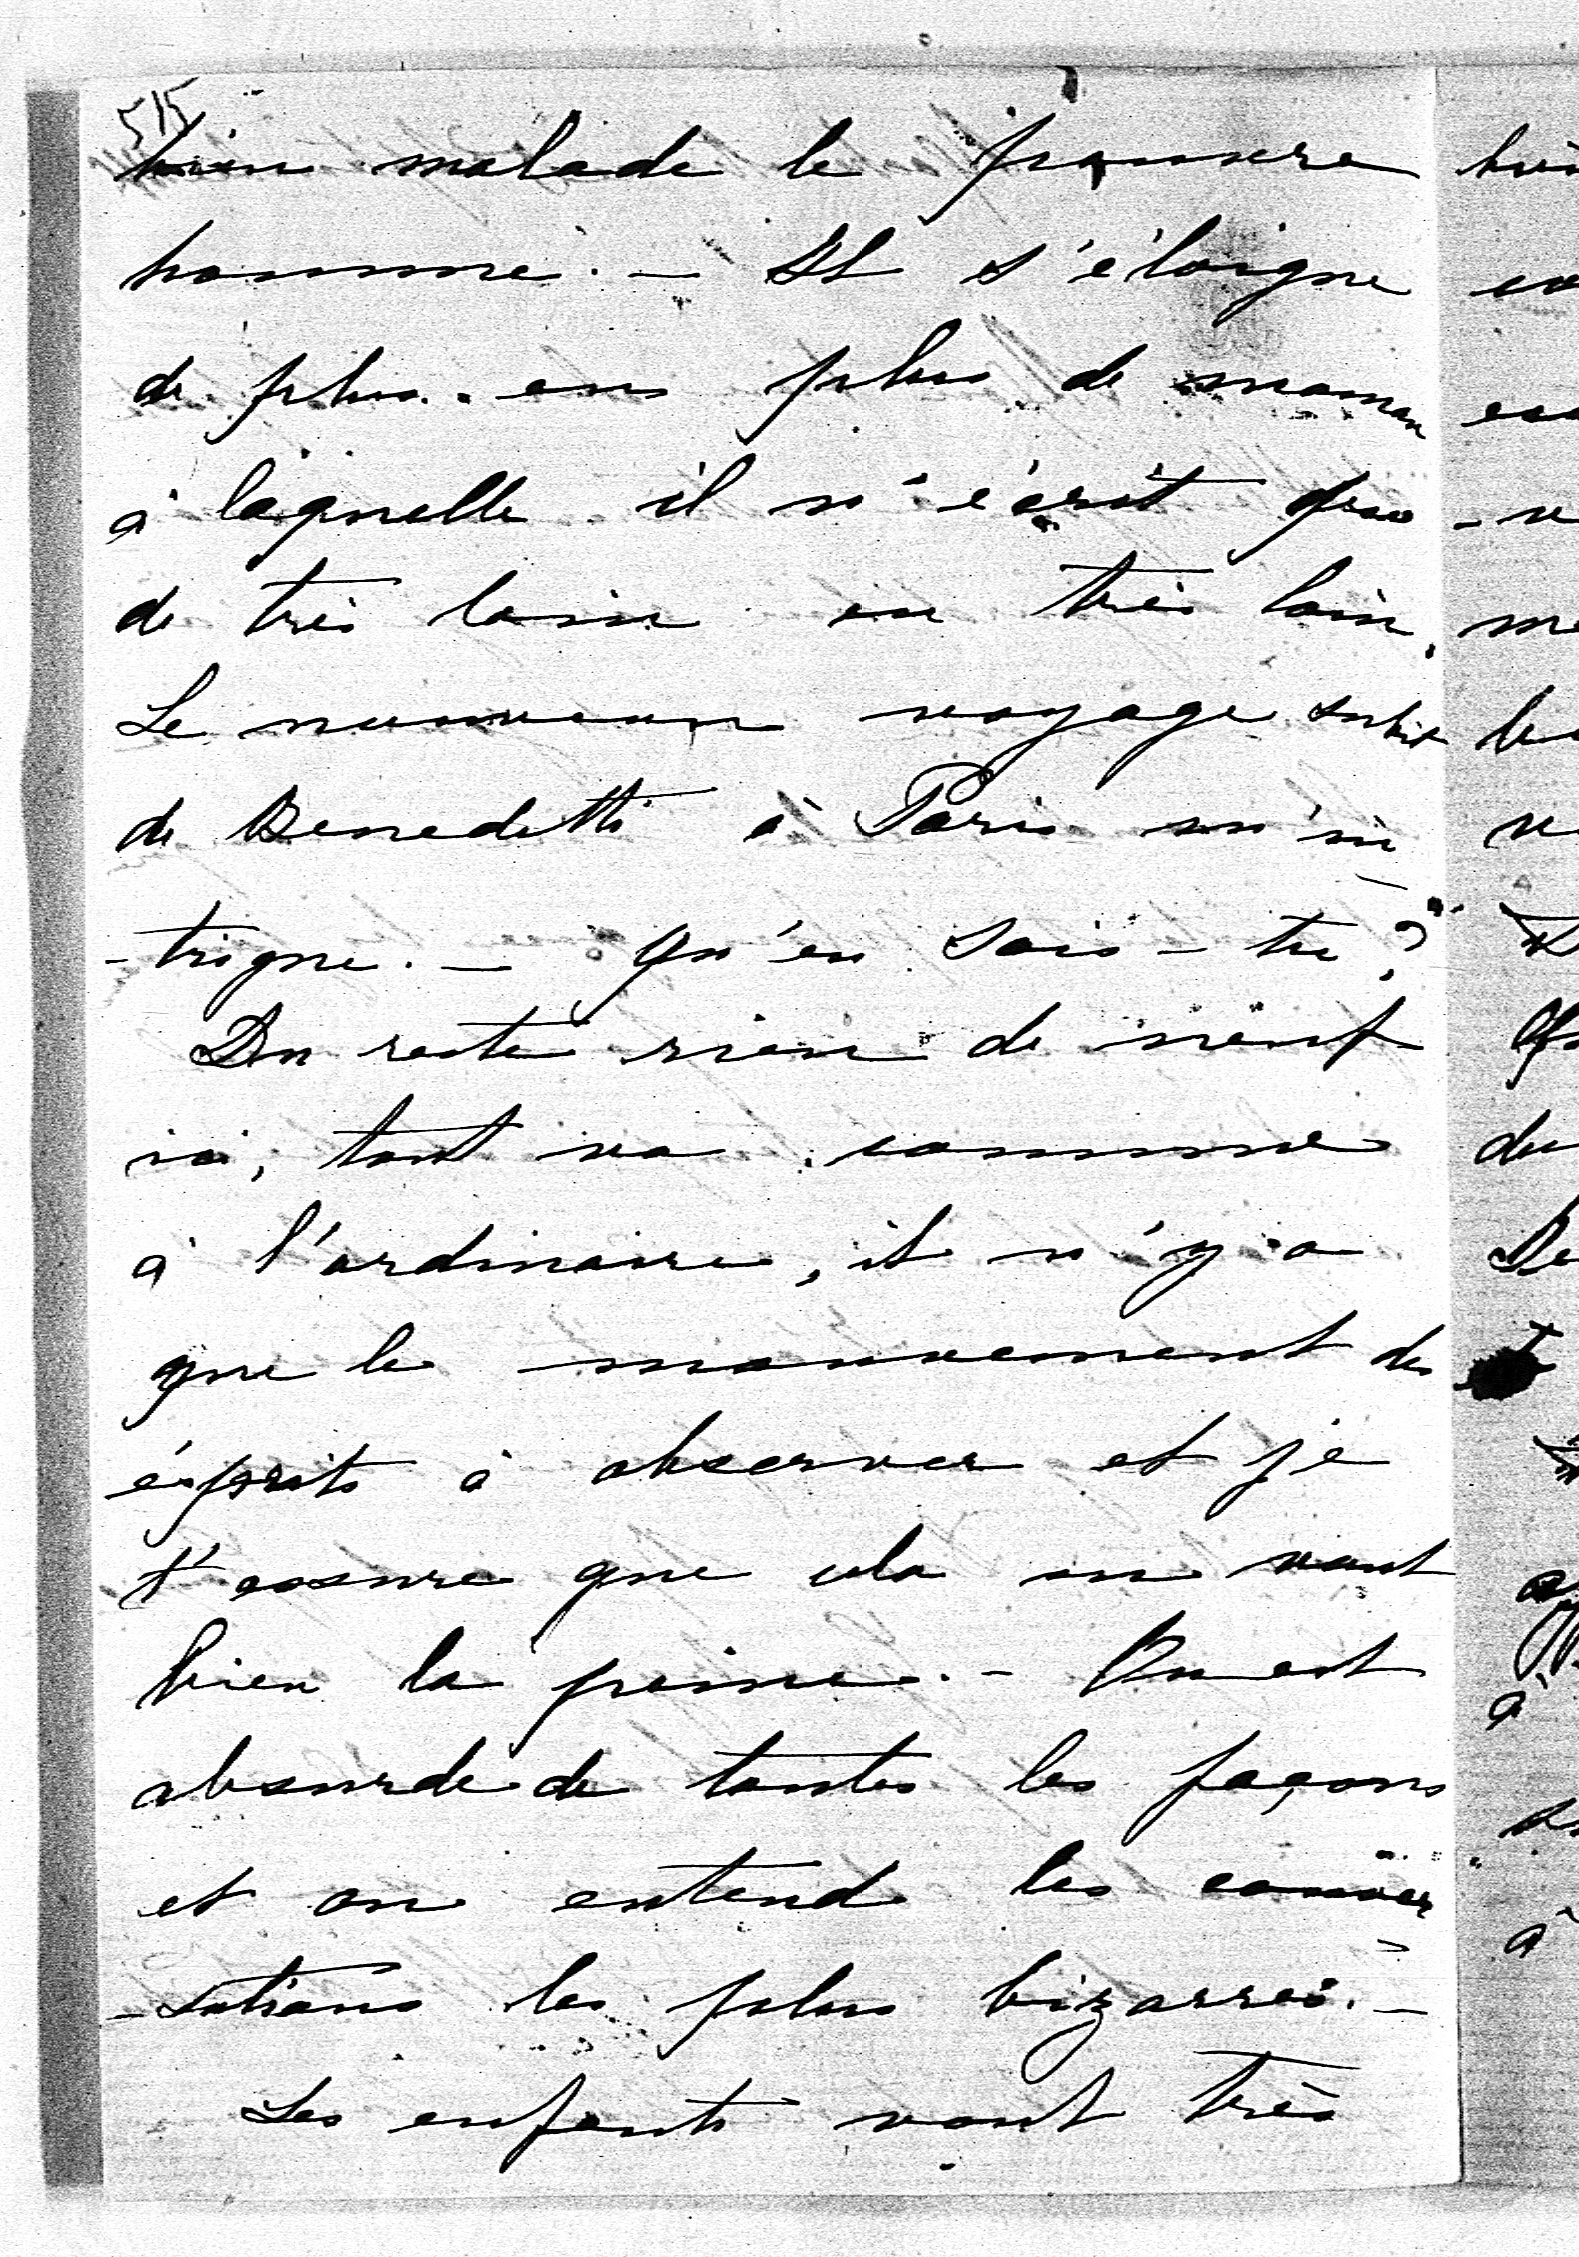 515
bien malade le pauvre
homme. — Il s'éloigne
de plus en plus de maman
à laquelle il n'écrit que
de très loin en très loin.
Le nouveau voyage subit
de Benedetti à Paris m'in
-trigue. — Qu'en sais-tu?
Du reste rien de neuf
ici, tout va comme
à l'ordinaire, il n'y a
que le mouvement des
ésprits à observer et je
t'assure que cela en vaut
bien la peine. — On est
absurde de toutes les façons
et on entend les conver
-sations les plus bizarres. —
Les enfants vont très